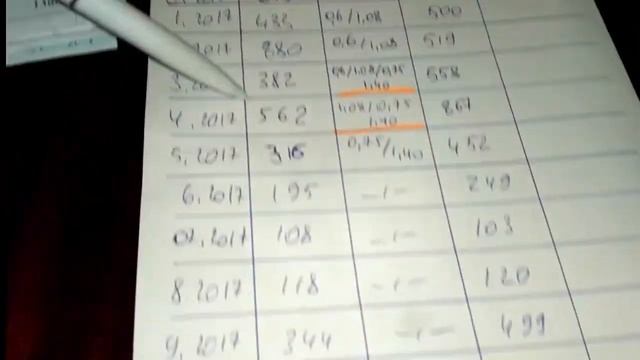 1.2017 432 0,6/1,08 500
.2017 280 0,6/1,08 519
3.20 382 0,6/1,08/0,75 558
1,40
4.2017 562 1,08/0,75 867
1,40
5.2017 316 0,75/1,40 452
6.2017 195 -ı- 249
07.2017 108 -ı- 103
8 2017 118 -ı- 120
9.2017 344 -ı- 499